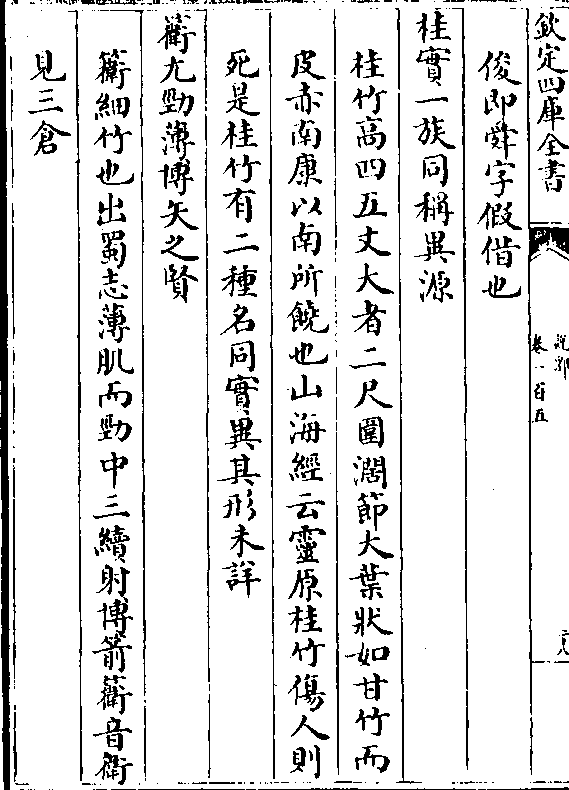 欽定四庫全書
說郛
卷一百五
二八
俊即舜字假借也
桂實一族同稱異源
桂竹髙四五丈大者二尺圍濶節大葉狀如甘竹而
皮赤南康以南所饒也山海經云靈原桂竹傷人則
死是桂竹有二種名同實異其形未詳
䕔尤勁薄博矢之賢
䕔細竹也出蜀志薄肌而勁中三續射博箭䕔音衛
見三倉